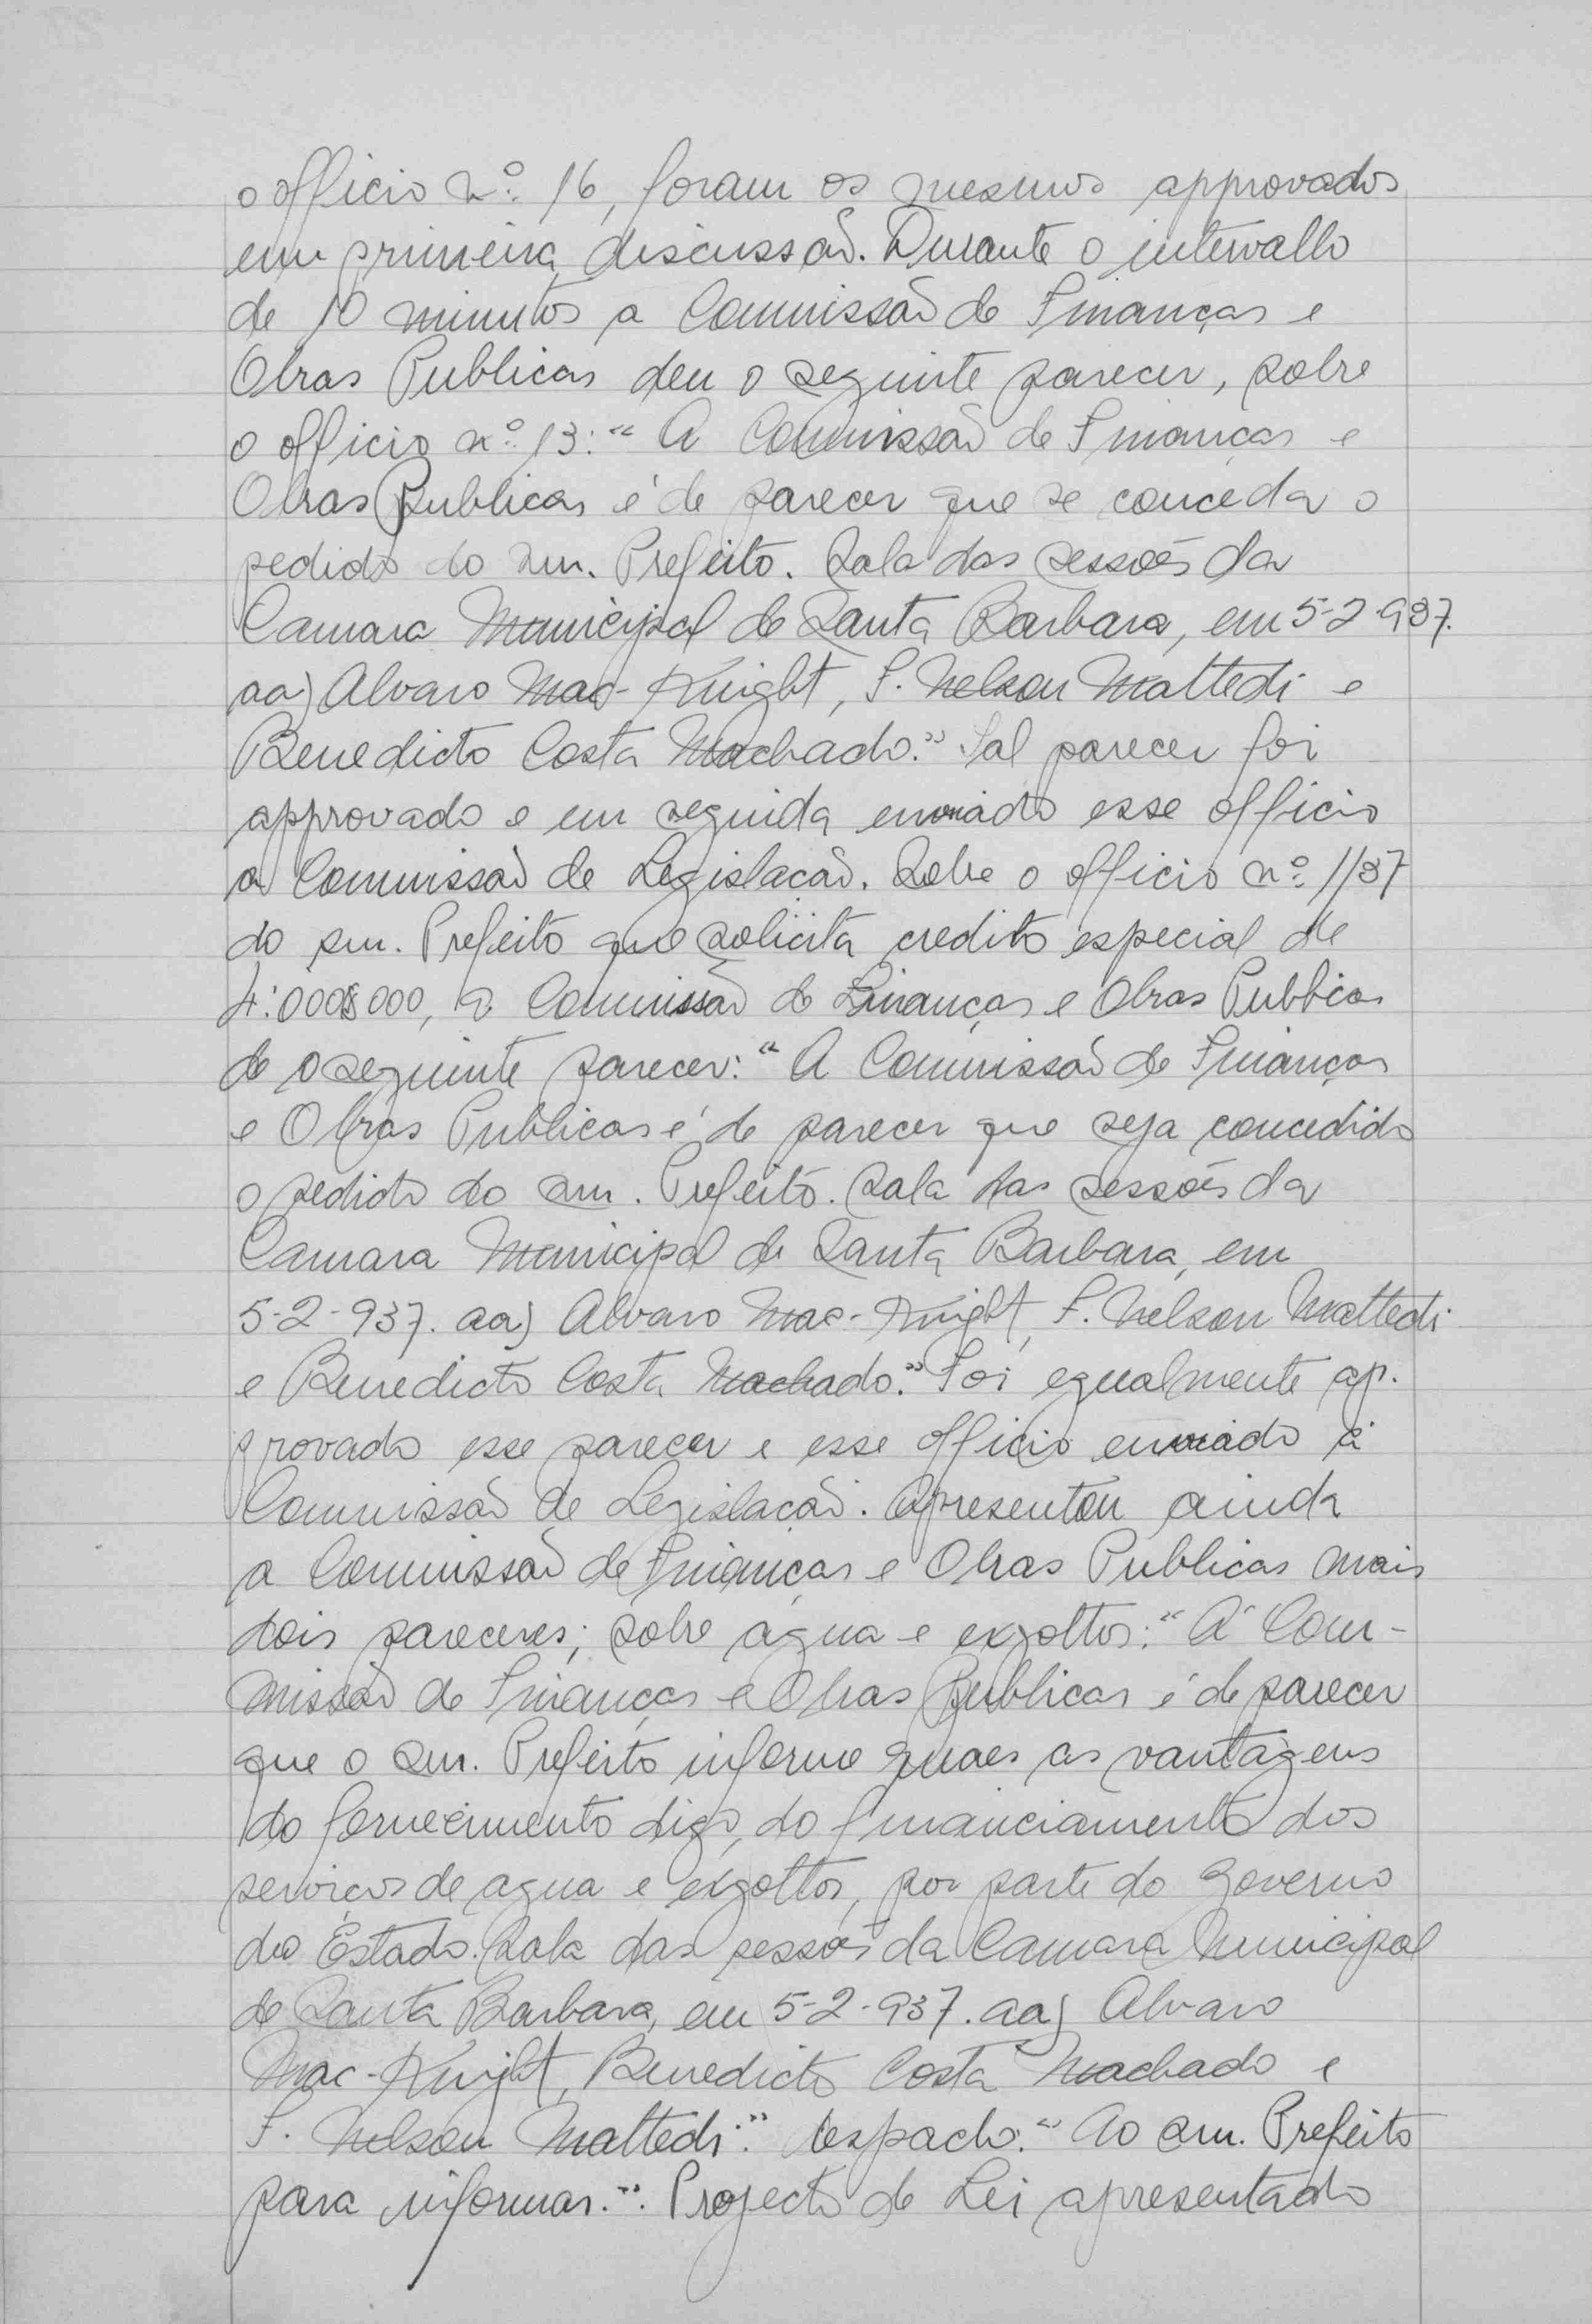 o officio nº 16, foram os mesmos approvados
em primeira discussão. Durante o intervallo
de 10 minutos a Commissão de Finanças e
Obras Publicas deu o seguinte parecer, sobre
o officio nº 13: "A Commissão de Finanças e
Obras Publicas é de parecer que se conceda o
pedido do snr. Prefeito. Sala das sessões da
Camara Municipal de Santa Barbara, em 5-2-937.
aa) Alvaro Mac-Knight, F. Nelson Mattedi e
Benedicto Costa Machado." Tal parecer foi
approvado e em seguida enviado esse officio
a Commissão de Legislação. Sobre o officio nº 1/37
do snr. Prefeito que solicita credito especial de
4:000$000, a Commissão de Finanças e Obras Publicas
de o seguinte parecer: "A Commissão de Finanças
e Obras Publicas é de parecer que seja concedido
o pedido do snr. Prefeito. Sala das sessões da
Camara Municipal de Santa Barbara, em
5-2-937. aa) Alvaro Mac-Knight, F. Nelson Mattedi
e Benedicto Costa Machado." Foi egualmente ap-
provado esse parecer e esse officio enviado á
Commissão de Legislação. Apresentou ainda
a Commissão de Finanças e Obras Publicas mais
dois pareceres; sobre agua e exgottos: "A Com-
missão de Finanças e Obras Publicas é de parecer
que o snr. Prefeito informe quaes as vantagens
do fornecimento digo, do financiamento dos
serviços de agua e exgottos, por parte do Governo
do Estado. Sala das sessões da Camara Municipal
de Santa Barbara, em 5-2-937. aa) Alvaro
Mac-Knight, Benedicto Costa Machado e
F. Nelson Mattedi." Despacho: "Ao snr. Prefeito
para informar.". Projecto de Lei apresentado